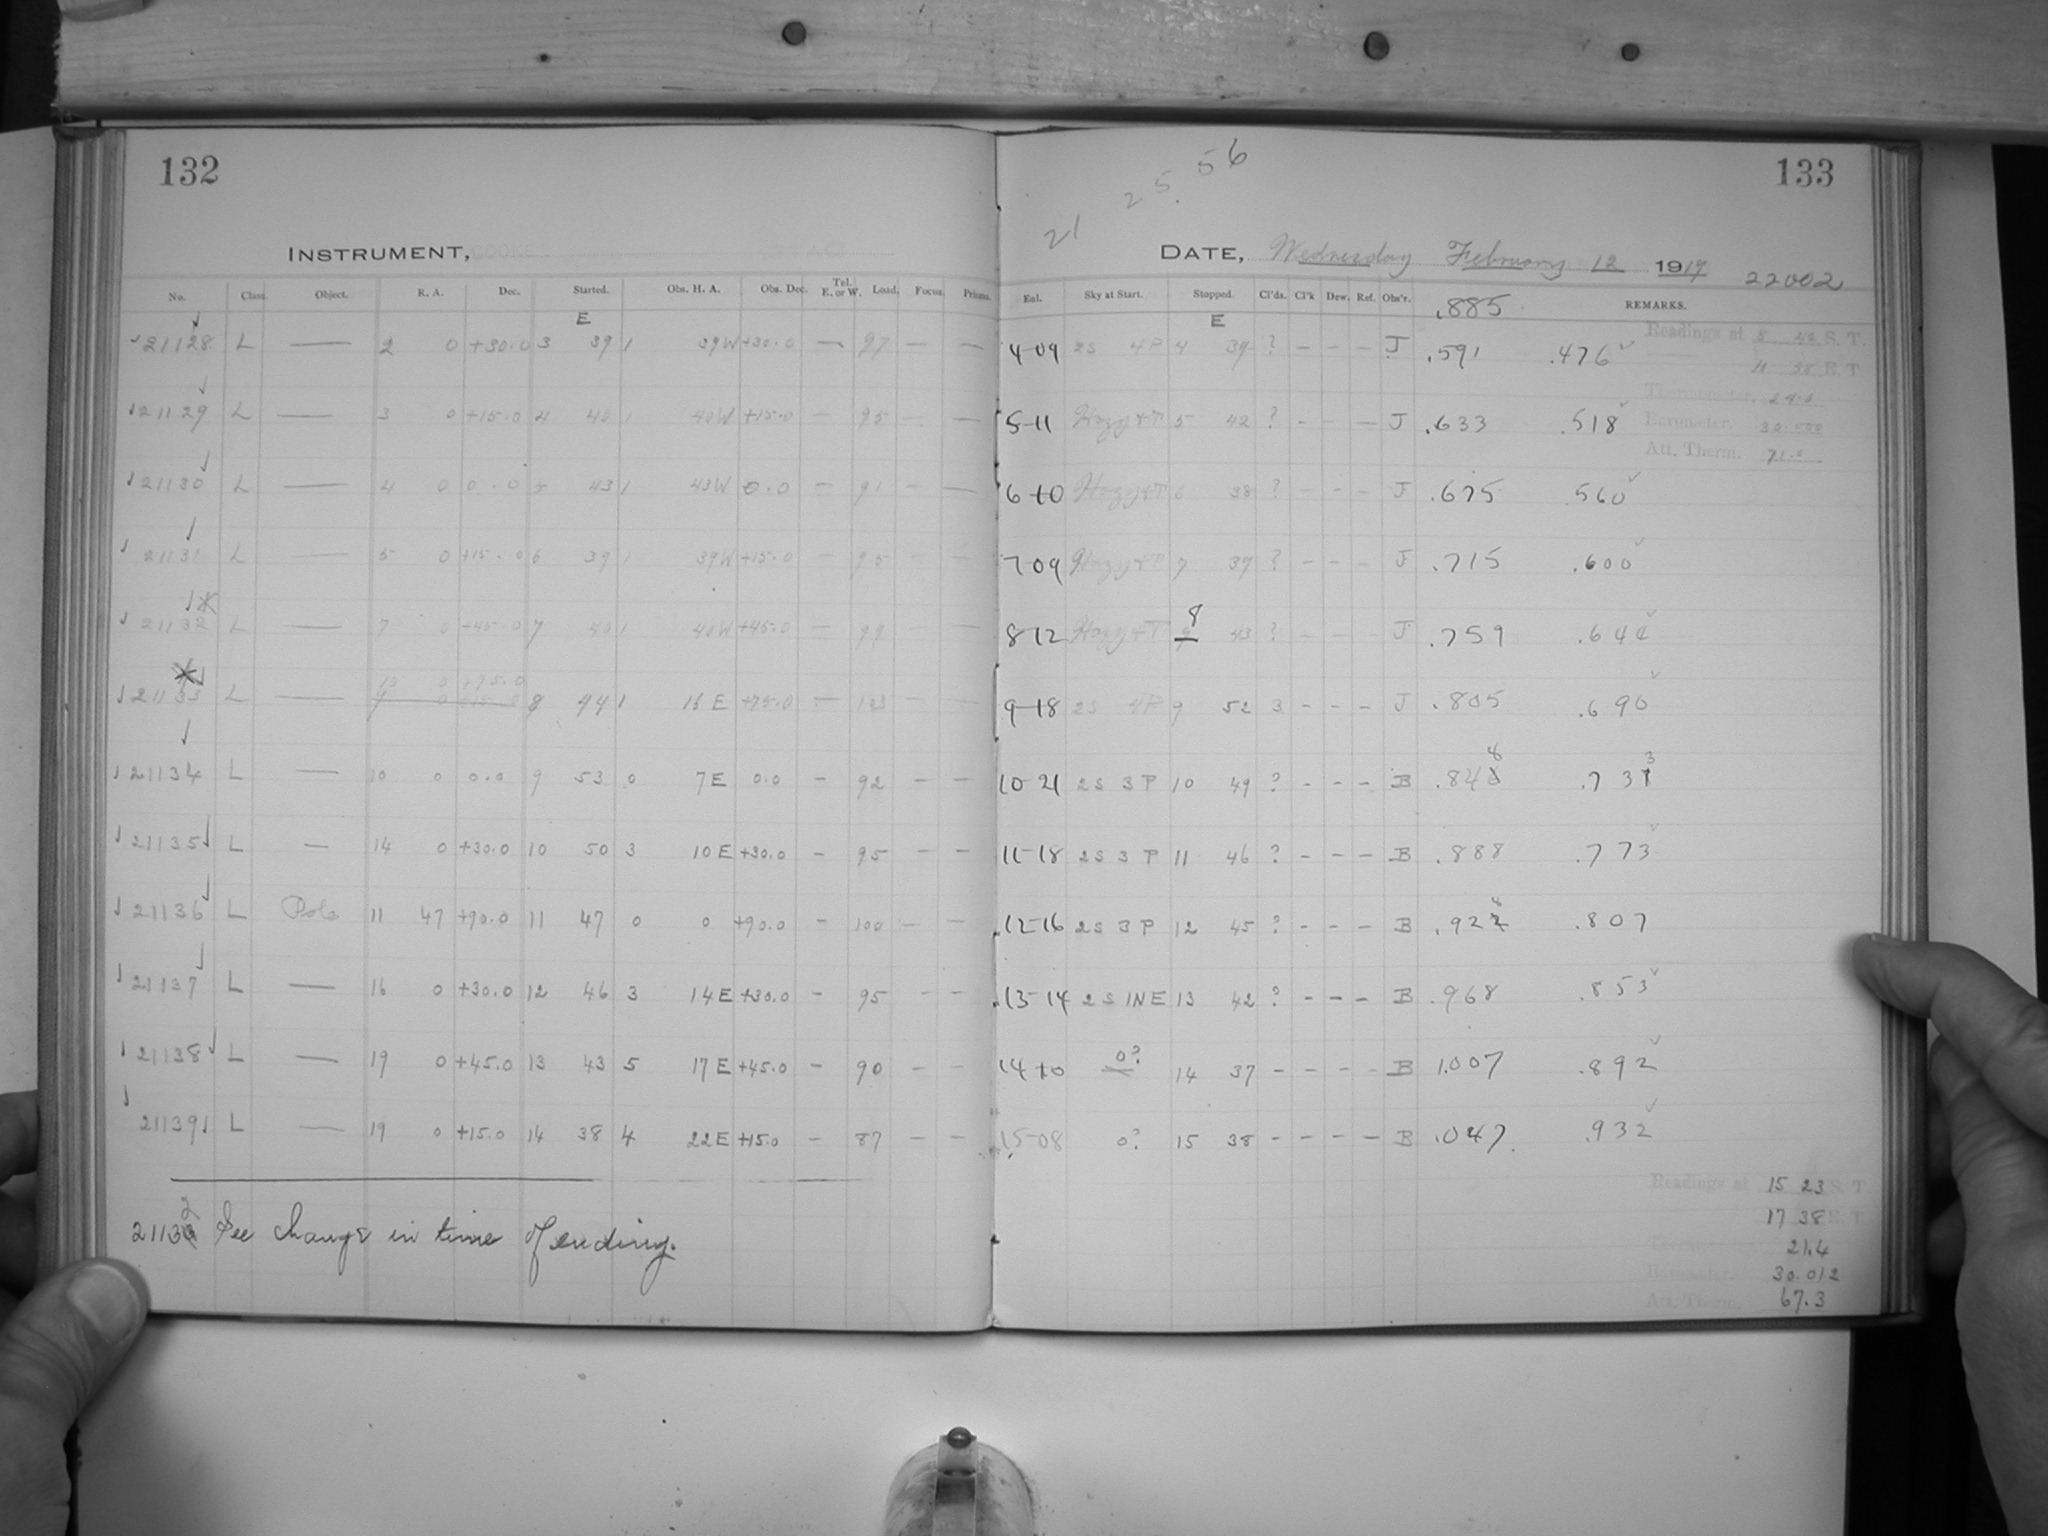 132
INSTRUMENT, COOKE
No. Class. Object. R. A. Dec. Started. Obs. H. A. Obs. Dec. Tel. E. or W. Load. Focus. Prisms.
E
21128 L — 2 0 +30.0 3 39 1 39 W +30.0 — 97 — —
21129 L — 3 0 +15.0 4 40 1 40 W +15.0 — 95 — —
21130 L — 4 0 0.0 5 43 1 43 W 0.0 — 91 — —
21131 L — 5 0 +15.0 6 39 1 39 W +15.0 — 95 — —
21132 L — 7 0 +45.0 7 40 1 40 W +45.0 — 99 — —
10 0 +75.0
21133 L — 9 0 8 1 E +75.0 — 103 — —
21134 L — 10 0 0.0 9 53 0 7 E 0.0 – 92 – –
21135 L — 14 0 +30.0 10 50 3 10 E +30.0 – 95 – –
21136 L Pole 11 47 +90.0 11 47 0 0 +90.0 – 100 – –
21137 L — 16 0 +30.0 12 46 3 14 E +30.0 – 95 – –
21138 L — 19 0 +45.0 13 43 5 17 E +45.0 – 90 – –
21139 L — 19 0 +15.0 14 38 4 22 E +15.0 – 87 – –
21132 See change in time of ending.
133
21 25.56
DATE, Wednesday February 12 1919 22002
Eol. Sky at Start. Stopped. Cl'ds. Cl'k Dew. Ref. Obs'r. .885 REMARKS.
E
4-09 2S 4P 4 39 ? – – – J .591 .476
5-11 Hazy+P 5 42 ? – – – J .633 .518
6+0 Hazy+P 6 38 ? – – – J .675 .560
7-09 Hazy+P 7 39 ? – – – J .715 .600
8-12 Hazy+P 8 43 ? – – – J .759 .644
9-18 2S 4P 9 52 3 – – – J .805 .690
10-21 2S 3P 10 49 ? – – – B .848 .733
11-18 2S 3P 11 46 ? – – – B .888 .773
12-16 2S 3P 12 45 ? – – – B .922 .807
13-14 2S 1NE 13 42 ? – – – B .968 .853
14+0 0? 14 37 – – – – B 1.007 .892
15-08 0? 15 38 – – – – B .047 .932
Readings at 8 42 S. T.
11 38 E. T
Thermometer. 24.0
Barometer. 30.000
Att. Therm. 71.0
Readings at 15 23 S. T
17 38 E. T
21.4
Barometer. 30.012
Att. Therm. 67.3